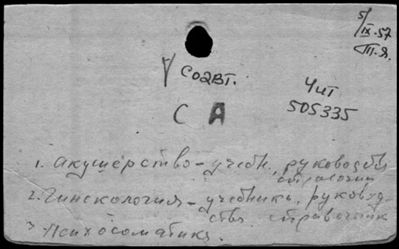 5/IX-57
III-Я.
Со2вт.
Чит
505335
С А
1. Акушерство – учебн., руководства
справочн
2. Гинекология – учебники, руковод
ства справочник
3 Психосоматика.